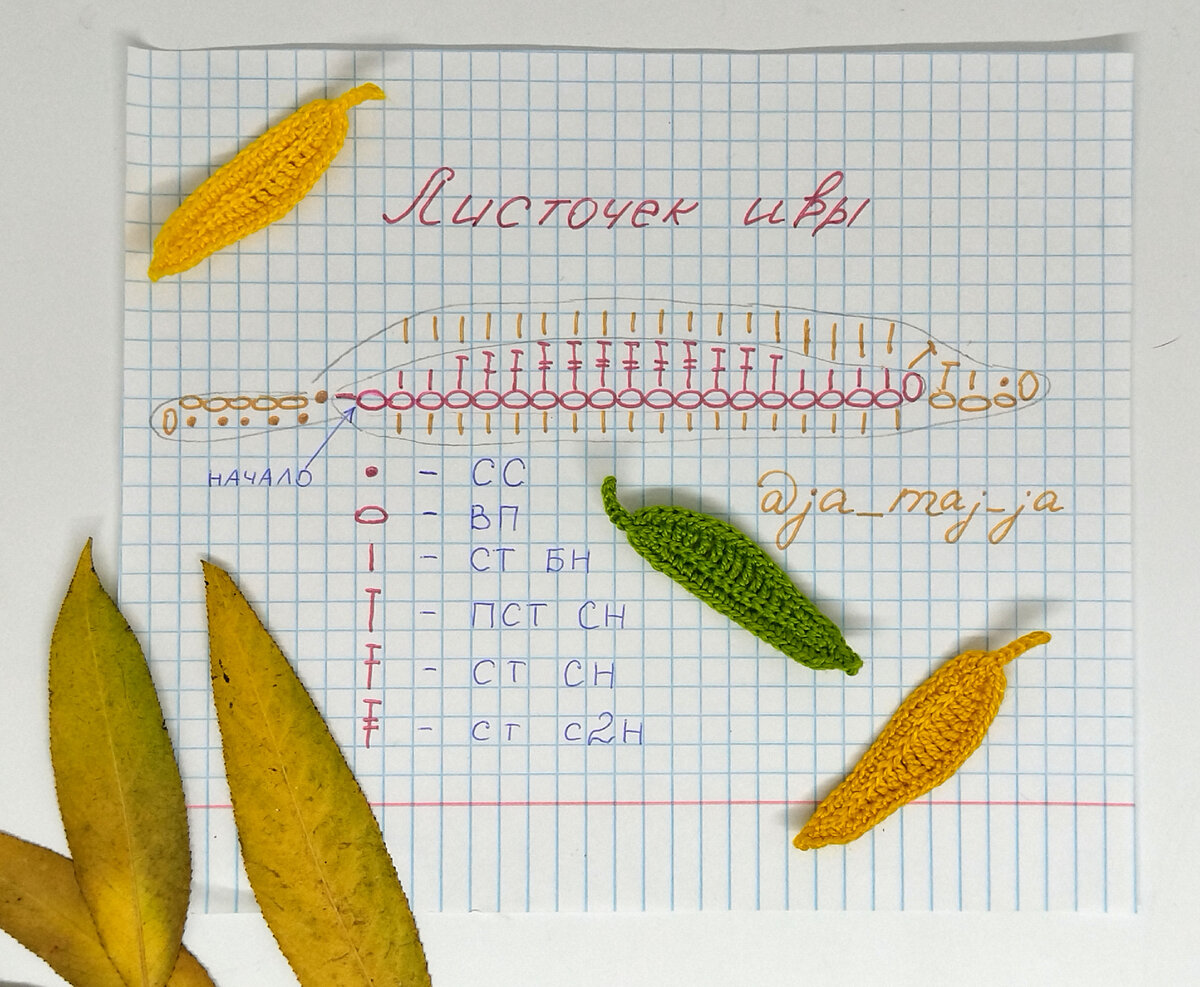 Листочек ивы
НАЧАЛО
- СС
@ja_maj_ja
- ВП
- СТ БН
- ПСТ СН
- СТ СН
- СТ С2Н